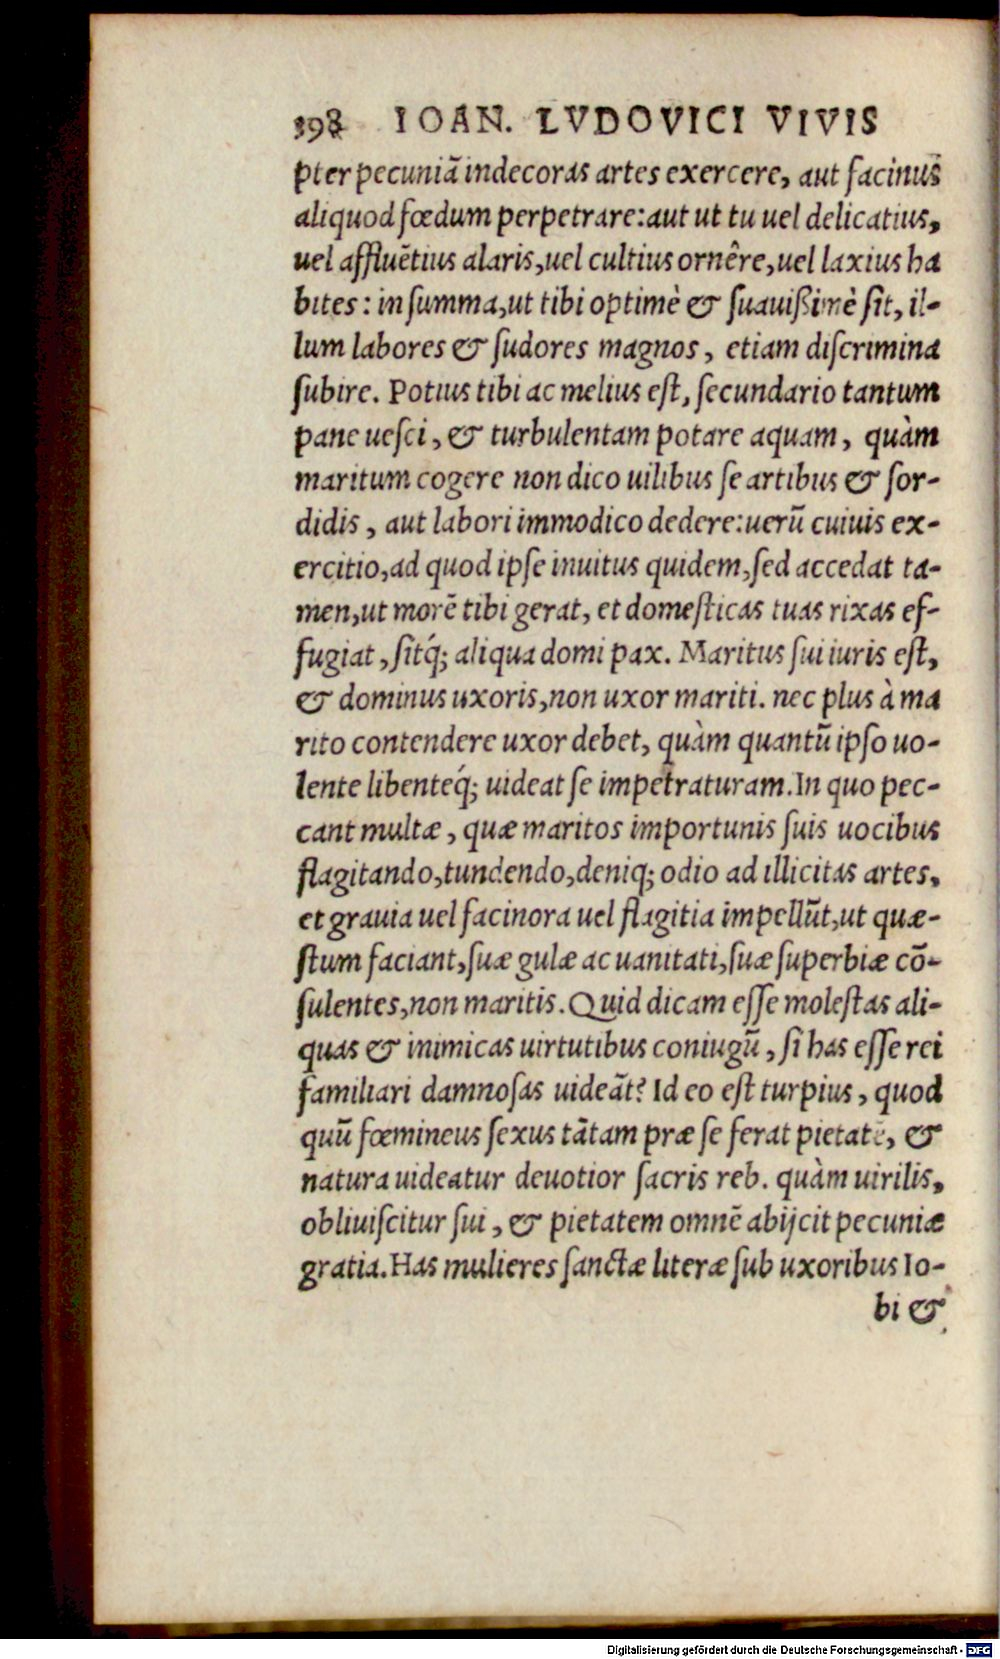 398 IOAN. LVDOVICI VIVIS
pter pecuniã indecoras artes exercere, aut facinus
aliquod fœdum perpetrare: aut ut tu uel delicatius,
uel affluẽtius alaris, uel cultius ornêre, uel laxius ha
bites: in summa, ut tibi optimè & suauißimè sit, il-
lum labores & sudores magnos, etiam discrimina
subire. Potius tibi ac melius est, secundario tantum
pane uesci, & turbulentam potare aquam, quàm
maritum cogere non dico uilibus se artibus & sor-
didis, aut labori immodico dedere: uerũ cuiuis ex-
ercitio, ad quod ipse inuitus quidem, sed accedat ta-
men, ut morẽ tibi gerat, et domesticas tuas rixas ef-
fugiat, sitq́; aliqua domi pax. Maritus sui iuris est,
& dominus uxoris, non uxor mariti. nec plus à ma
rito contendere uxor debet, quàm quantũ ipso uo-
lente libenteq́; uideat se impetraturam. In quo pec-
cant multæ, quæ maritos importunis suis uocibus
flagitando, tundendo, deniq; odio ad illicitas artes,
et grauia uel facinora uel flagitia impellũt, ut quæ-
stum faciant, suæ gulæ ac uanitati, suæ superbiæ cõ-
sulentes, non maritis. Quid dicam esse molestas ali-
quas & inimicas uirtutibus coniugũ, si has esse rei
familiari damnosas uideãt? Id eo est turpius, quod
quũ fœmineus sexus tãtam præ se ferat pietatẽ, &
natura uideatur deuotior sacris reb. quàm uirilis,
obliuiscitur sui, & pietatem omnẽ abijcit pecuniæ
gratia. Has mulieres sanctæ literæ sub uxoribus Io-
bi &
Digitalisierung gefördert durch die Deutsche Forschungsgemeinschaft - DFG